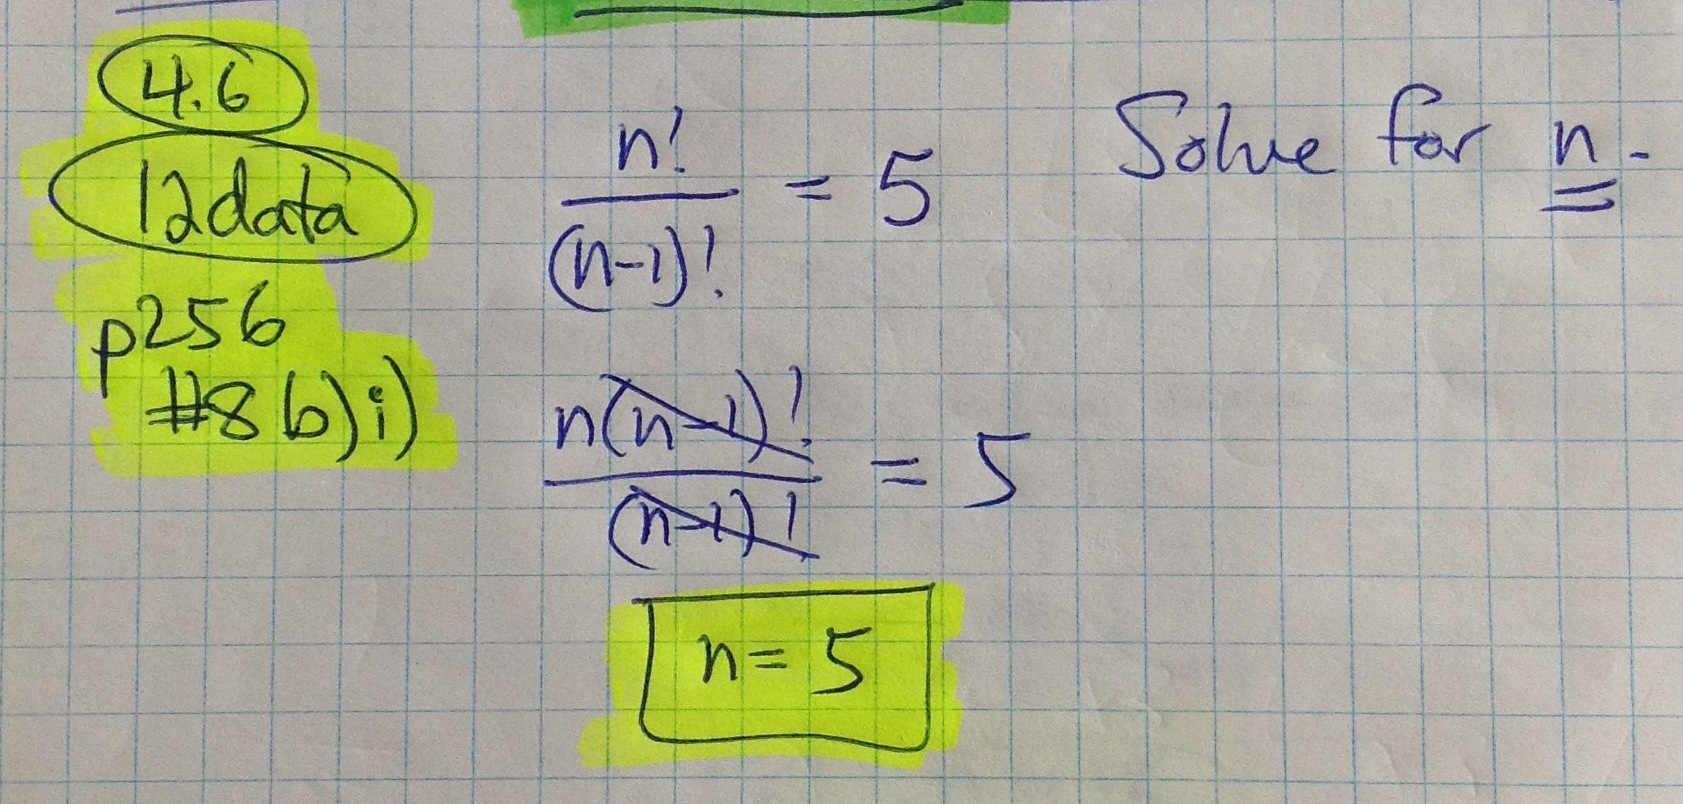 4.6
12data
p256
#8 b) i)
n!
(n-1)!
= 5
Solve for n.
n(n-1)!
(n-1)!
= 5
n = 5